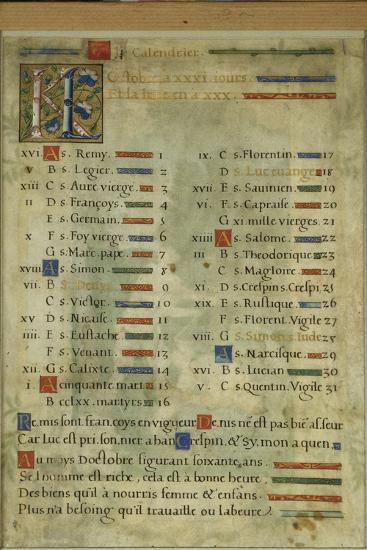 Calendrier.
Octobre a XXXI. iours.
Et la lune en a XXX.
xvi. A s. Remy. 1
v B s. Legier. 2
xiii C s. Aure vierge. 3
ii D s. Françoys. 4
E s. Germain. 5
x F s. Foy vierge 6
G s. Marc. pape. 7
xviii A s. Simon. 8
vii. B S. Denys 9
C s. Victor. 10
xv D s. Nicaise. 11
iiii. E s. Eustache 12
F s. Venant. 13
xii. G s. Calixte. 14
i A cinquante mart 15
B cclxx. martyrs 16
ix. C s. Florentin. 17
D S. Luc euange. 18
xvii. E s. Sauinien. 19
vi. F s. Capraise. 20
G xi. mille vierges. 21
xiiii A s. Salome. 22
iii B s. Theodorique 23
C s. Magloire. 24
xi. D s. Crespin s. Crespi 25
xix. E s. Rustique. 26
F s. Florent. Vigile 27
viii. G S. Simon s. Iude 28
A s. Narcisque. 29
xvi. B s. Lucian 30
v. C s. Quentin. Vigile 31
Remis sont francoys en vigueur Denis ne est pas bie᷃ asseur
Car Luc est prisonnier a han Crespin, & sy mon a quen.
Au moys Doctobre figurant soixante ans.
Se l'homme est riche, cela est à bonne heure,
Des biens qu'il à nourris femme & enfans.
Plus n'a besoing qu'il trauaille ou labeure